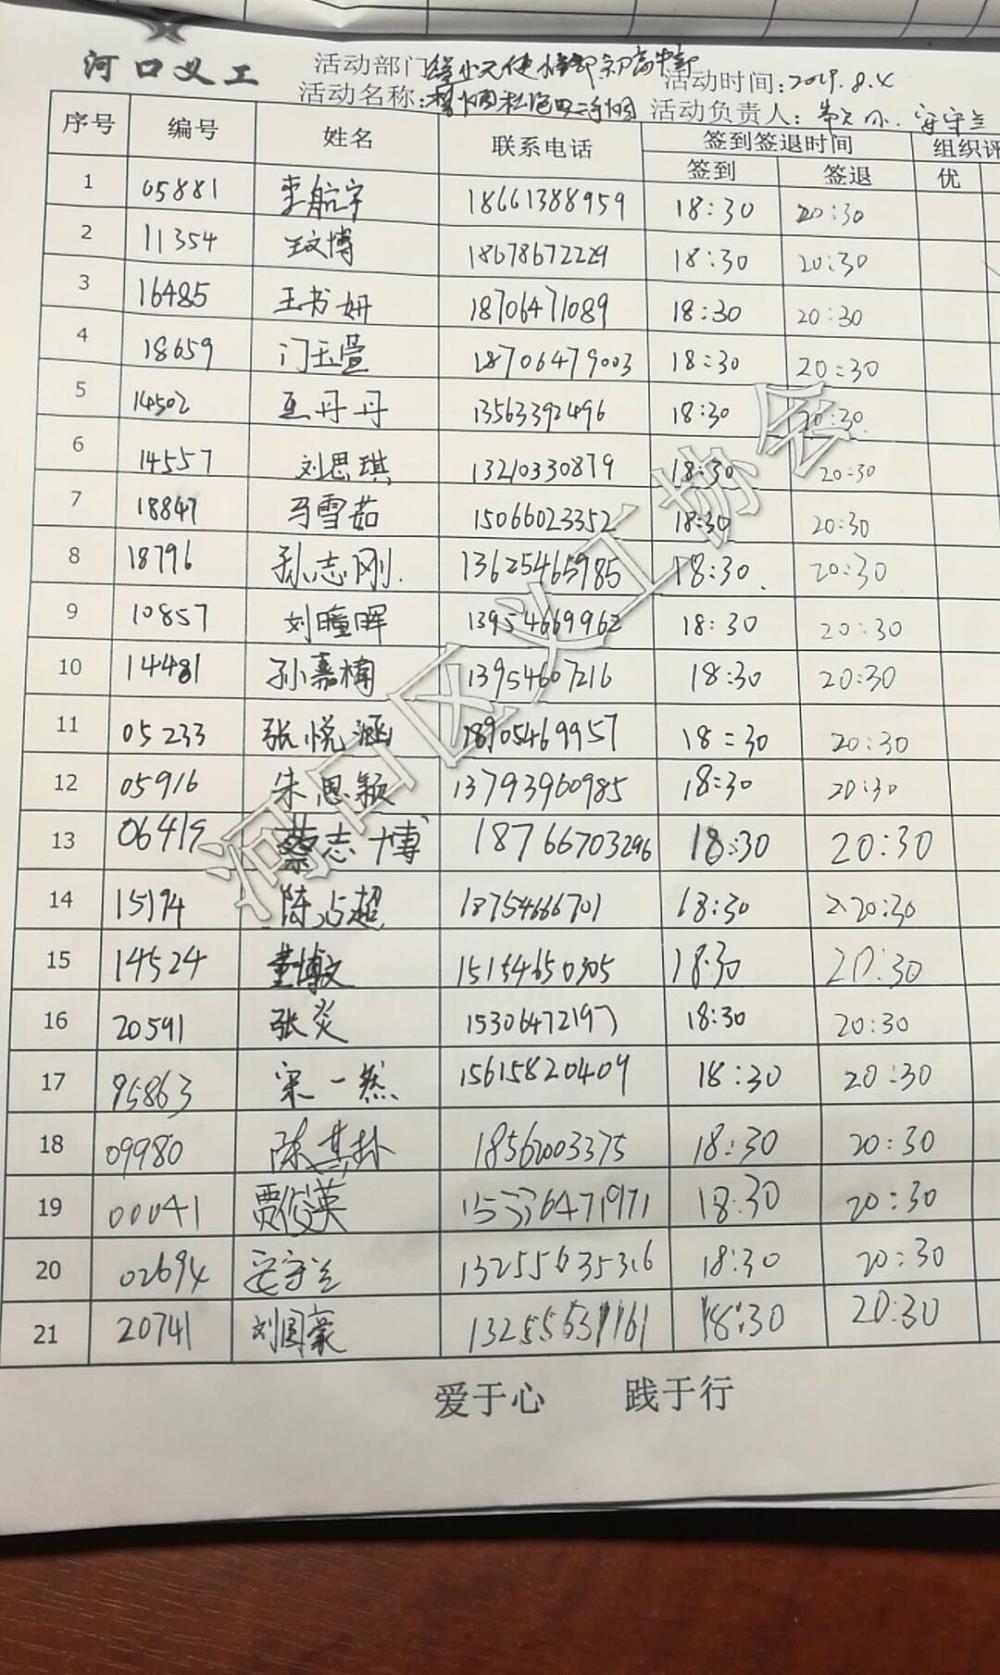 河口义工
活动部门: 活动时间:2019.8.4
活动名称: 活动负责人: 安守兰
序号 编号 姓名 联系电话 签到签退时间 组织评
签到 签退 优
1 05881 李航宇 18661388959 18:30 20:30
2 11354 王文博 18678672229 18:30 20:30
3 16485 王书妍 18706471089 18:30 20:30
4 18659 门玉萱 18706479003 18:30 20:30
5 14502 王丹丹 13563392496 18:30 20:30
6 14557 刘思琪 13210330879 18:30 20:30
7 18847 马雪茹 15066023352 18:30 20:30
8 18796 孙志刚. 13625465985 18:30. 20:30
9 10857 刘瞳晖 13954669962 18:30 20:30
10 14481 孙嘉楠 13954607216 18:30 20:30
11 05233 张悦涵 18905469957 18:30 20:30
12 05916 朱思颖 13793960985 18:30 20:30
13 06419 蔡志博 18766703296 18:30 20:30
14 15194 陈占超 18754666701 18:30 20:30
15 14524 董博文 15154650305 18:30 20:30
16 20591 张炎 15306472197 18:30 20:30
17 95863 宋一然 15615820409 18:30 20:30
18 09980 陈其朴 18562003375 18:30 20:30
19 00041 贾俊英 15336471971 18:30 20:30
20 02694 安守兰 13255635316 18:30 20:30
21 20741 刘国豪 13255631161 18:30 20:30
爱于心 践于行
河口区义工协会